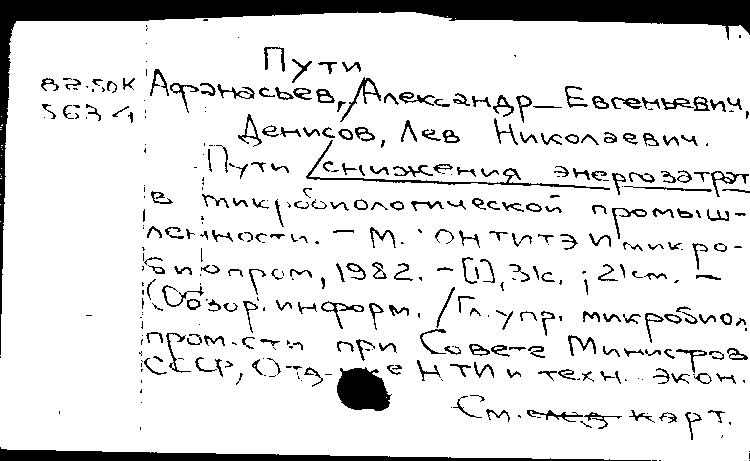 Пути
82.50К Афанасьев, Александр Евгеньевич,
563 Денисов, Лев Николаевич.
Пути снижения энергозатрат
в микробиологической промыш-
ленности. – М.: ОНТИТЭИмикро-
биопром, 1982. – [1], 31с. ; 21см. –
(Обзор. информ. / Гл. упр. микробиол.
пром-сти при Совете Министров
СССР, Отд-ние НТИ и техн. экон.
См. след карт.